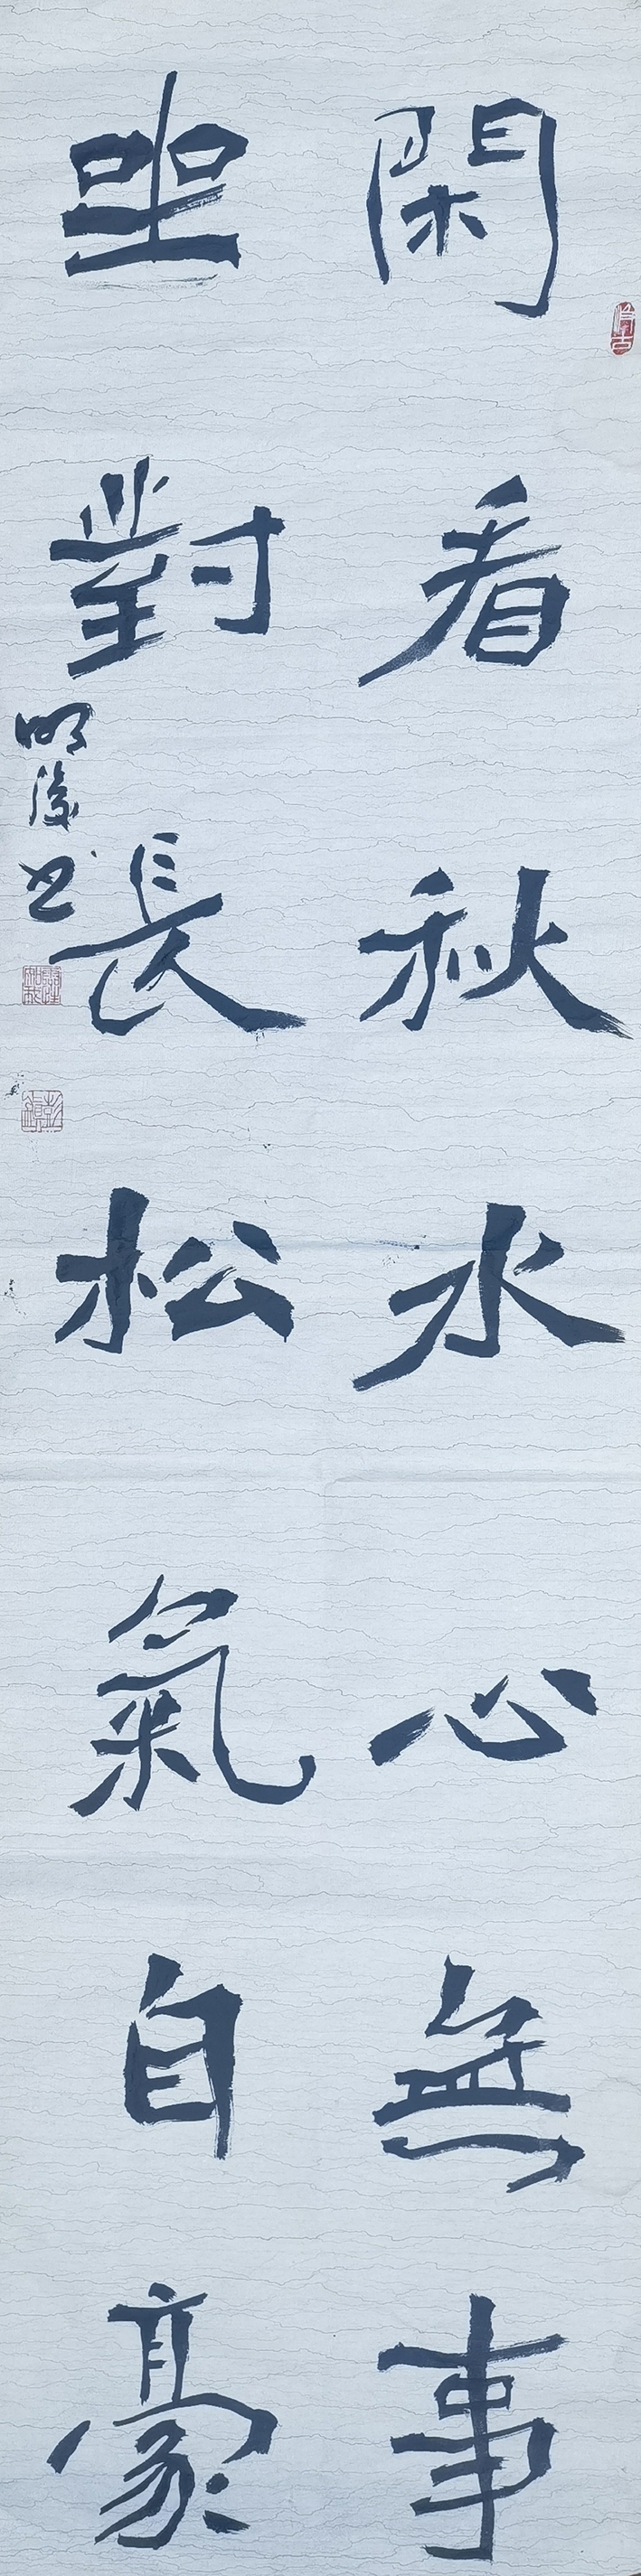 閑看秋水心無事
坐對長松氣自豪